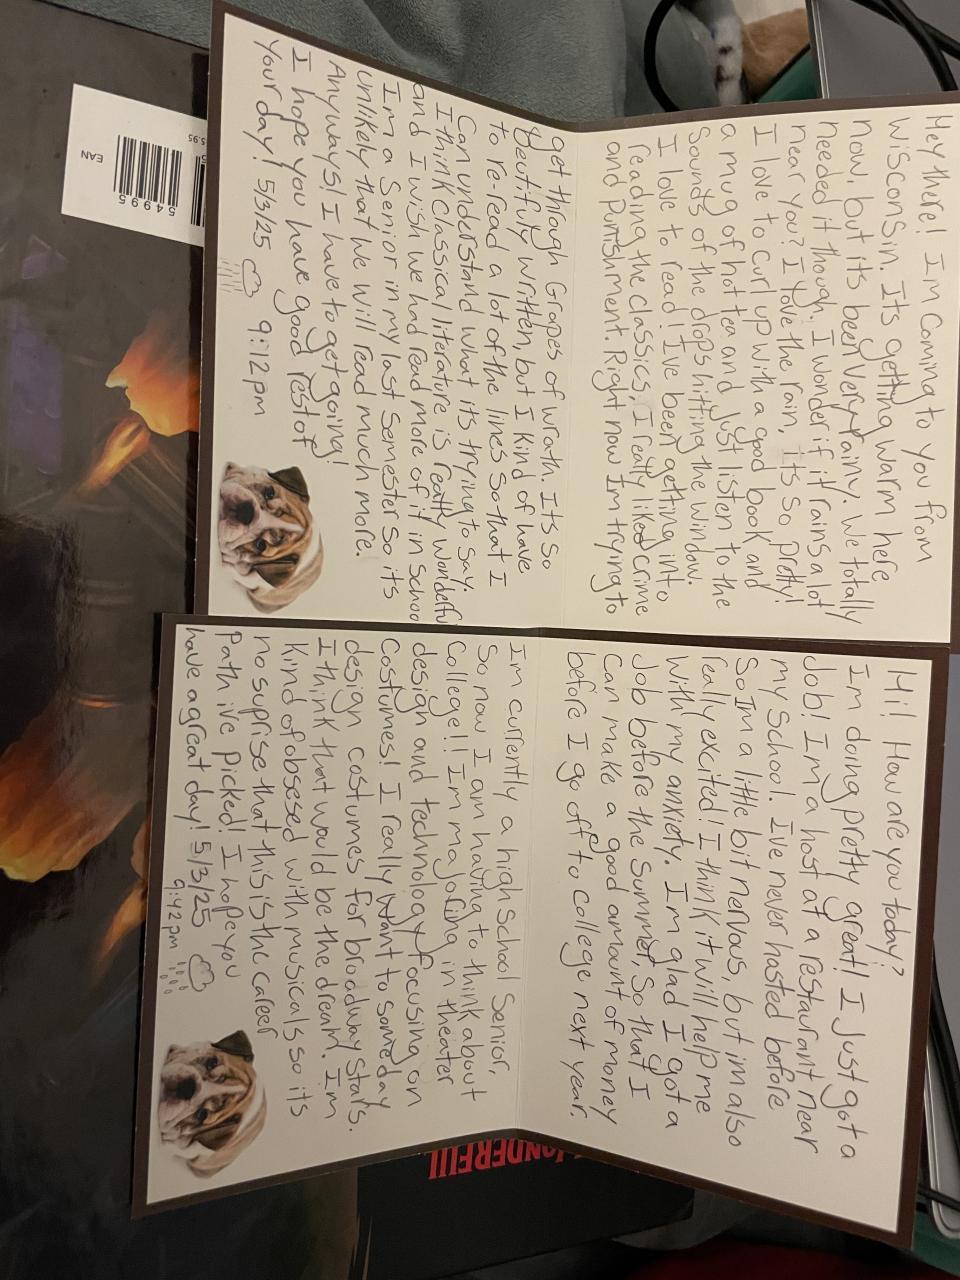 Hey there! Im Coming to you from
Wisconsin. Its getting warm here
now, but its been very rainy. We totally
needed it though. I wonder if it rains a lot
near you? I love the rain, its so pretty!
I love to curl up with a good book and
a mug of hot tea and just listen to the
Sounds of the drops hitting the window.
I love to read! I've been getting into
reading the classics. I really liked crime
and Punishment. Right now Im trying to
get throgh Grapes of wrath. Its so
beutifuly written, but I kind of have
to re-read a lot of the lines so that I
Can understand what its trying to say.
I think Classical literature is really wonderful
and I wish we had read more of it in school
I'm a Senior in my last Semester so its
unlikely that we will read much more.
Anyways! I have to get going!
I hope you have good rest of
Your day! 5/3/25 9:12pm
Hi! How are you today?
Im doing pretty great! I Just got a
Job! I'm a host at a restaurant near
my School. I've never hosted before
So Im a little bit nervous, but im also
really excited! I think it will help me
with my anxiety. I'm glad I got a
Job before the Summer, So that I
Can make a good amount of money
before I go off to college next year.
Im currently a high School Senior,
So now I am having to think about
College!! I'm majoring in theater
design and technology focusing on
Costumes! I really want to someday
design costumes for broadway stars.
I think that would be the dream. I'm
Kind of obsesed with musicals so its
no suprise that this is the career
Path ive picked! I hope you
have a great day! 5/3/25
9:42pm
EAN
54995
WONDERFUL